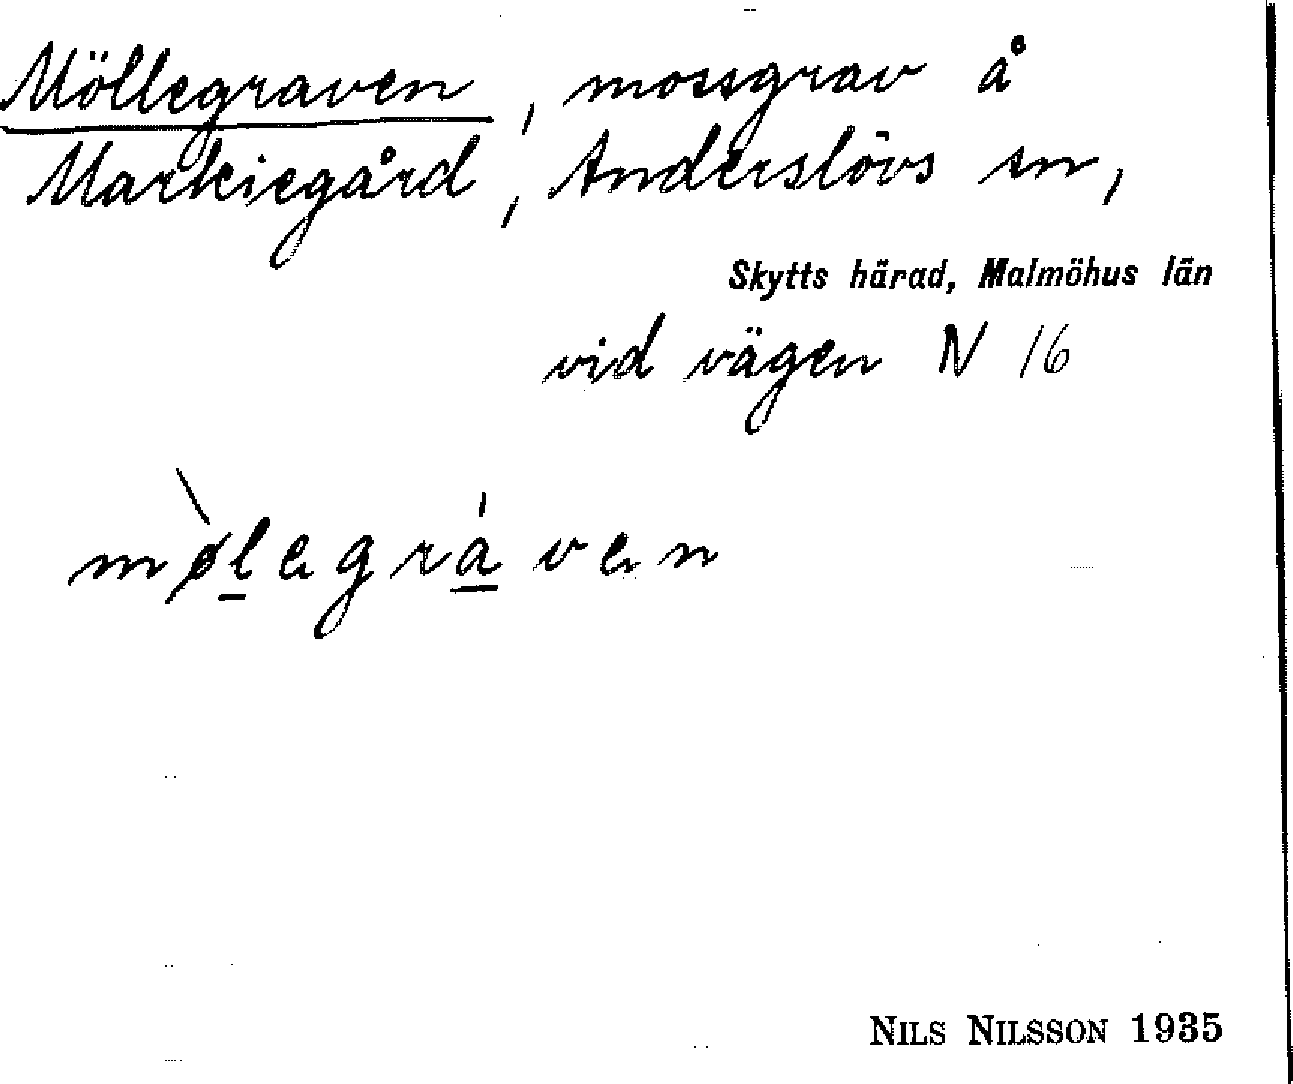 Möllegraven, mossgrav å
Markiegård, Anderslövs sn,
Skytts härad, Malmöhus län
vid vägen N 16
mø̀legrá ven
NILS NILSSON 1935